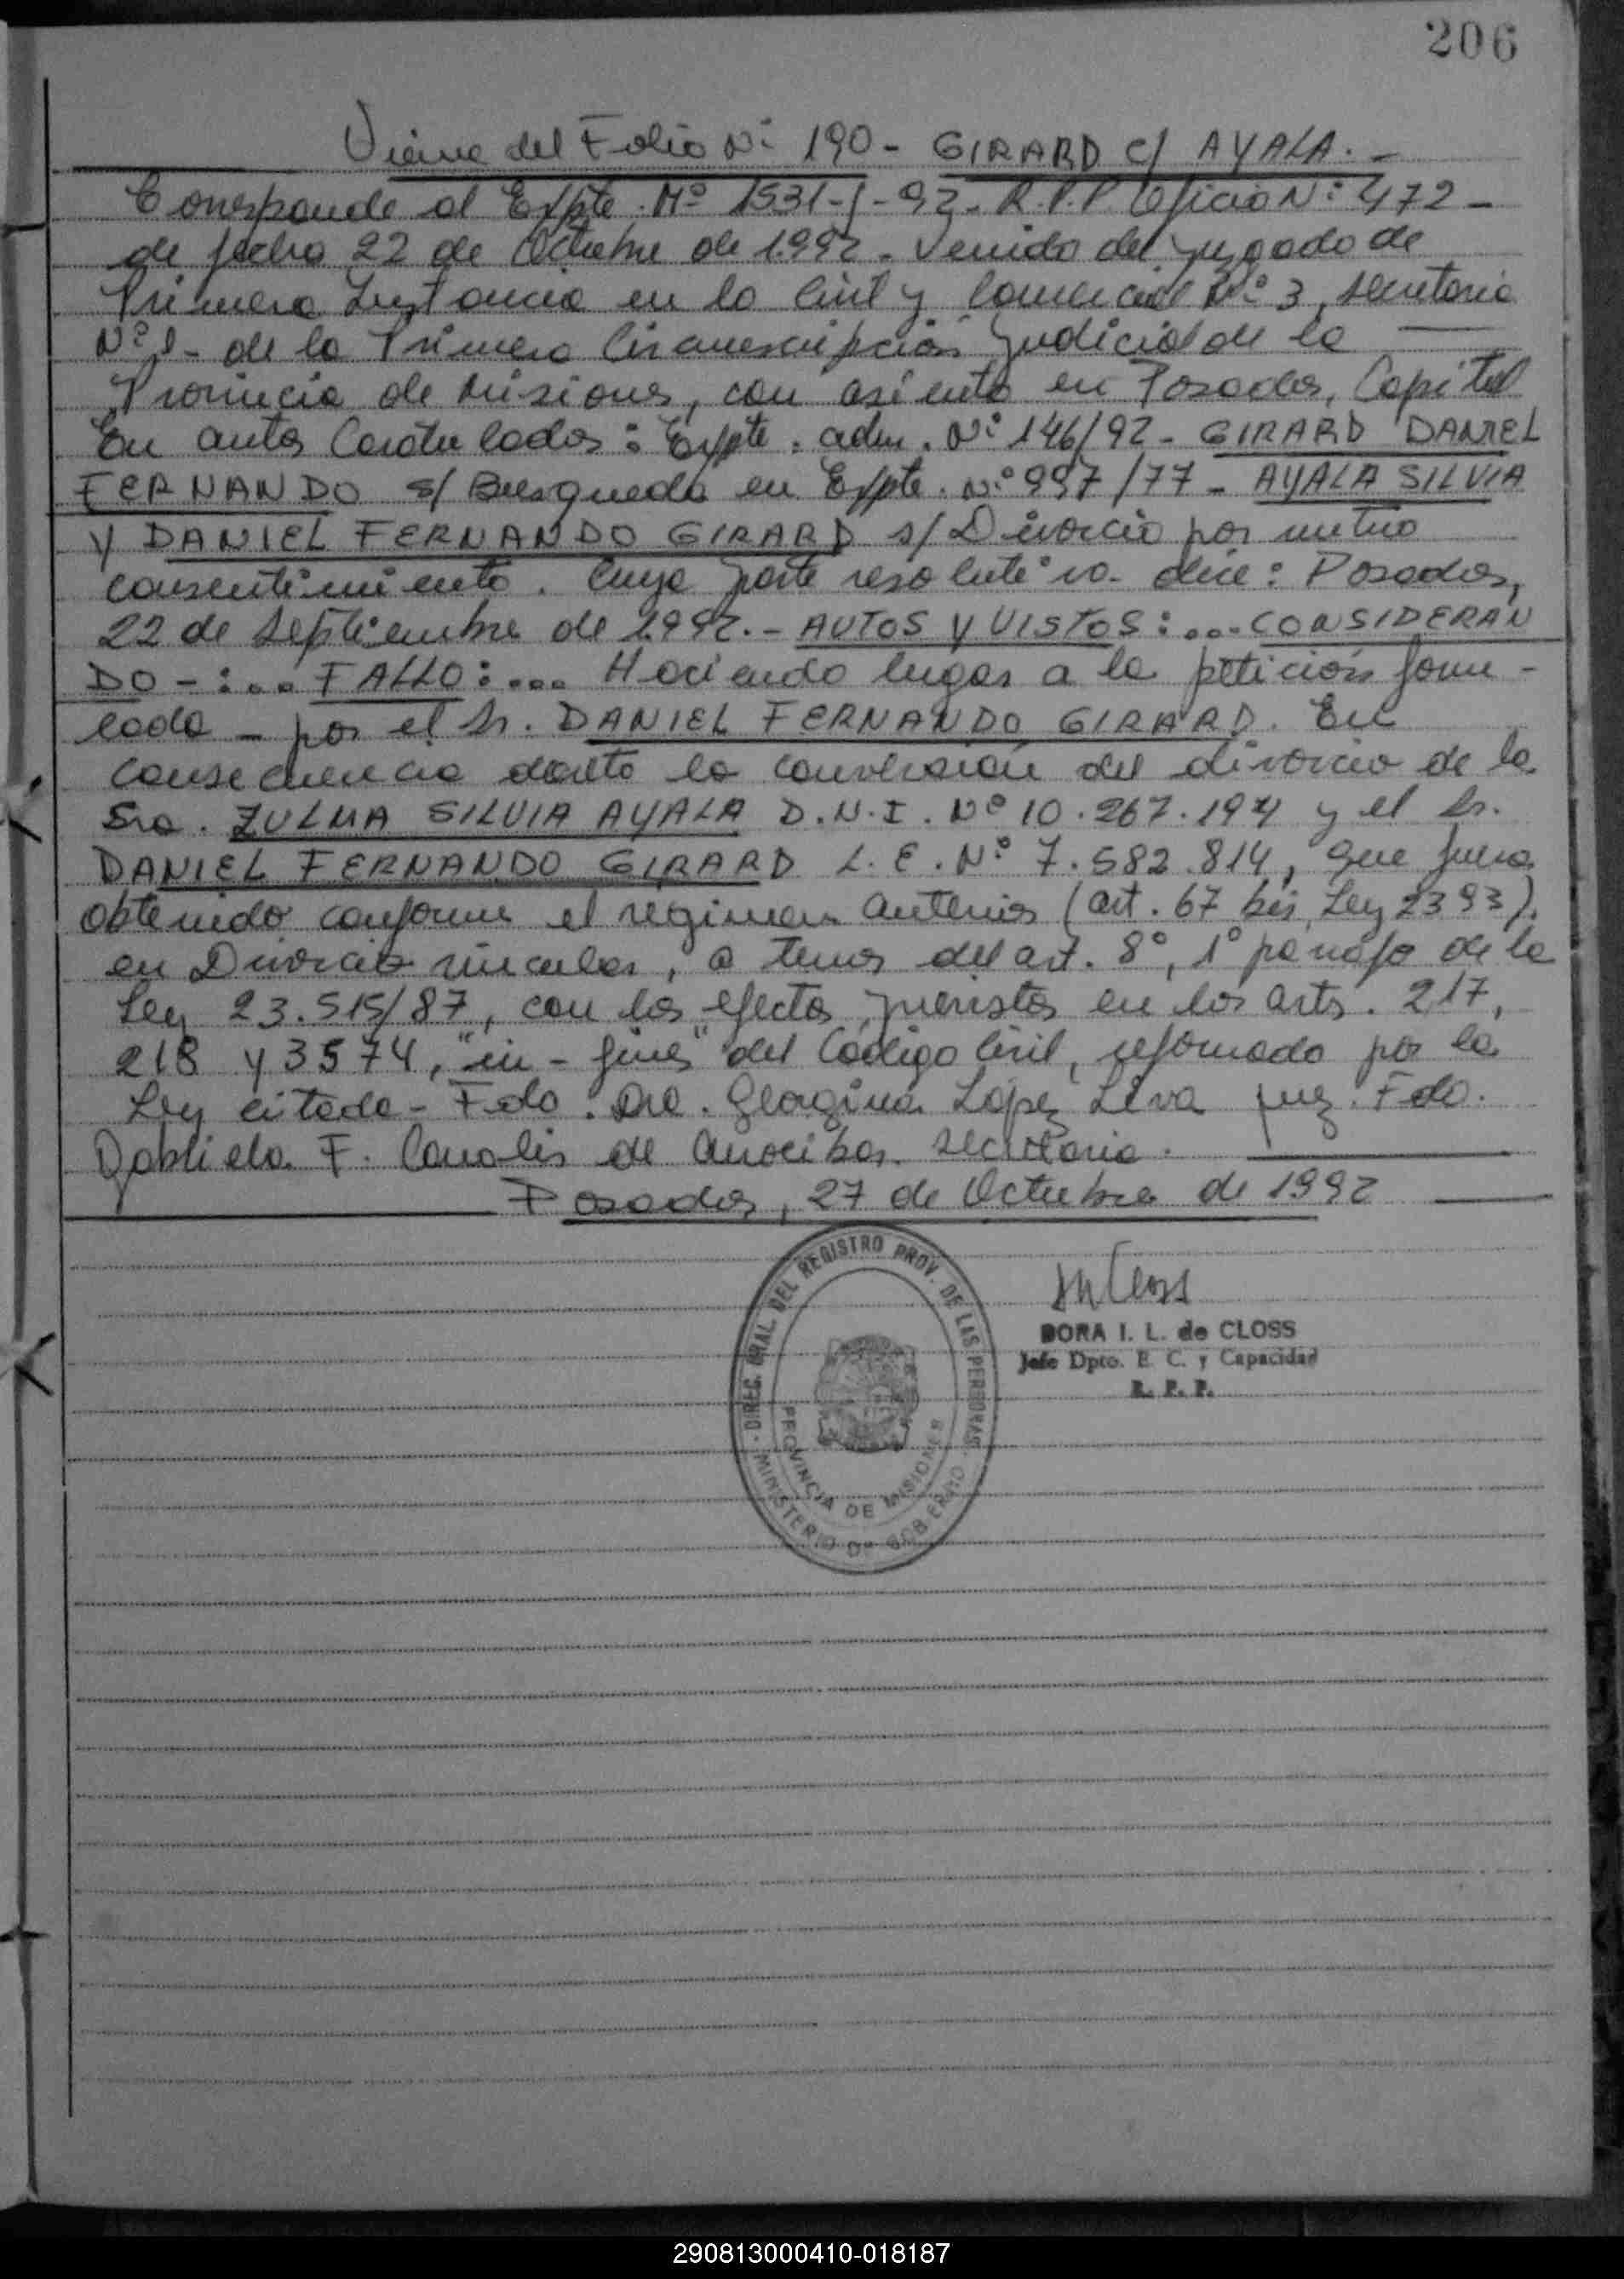 206
Viene del Folio Nº 190 - GIRARD C/ AYALA. -
Corresponde al Expte. Nº 1531-J-92. R.P.P. Oficio Nº 472 -
de fecha 22 de Octubre de 1.992. Venido del Juzgado de
Primera Instancia en lo Civil y Comercial Nº 3, secretaria
Nº 1- de la Primera Circunscripción Judicial de la
Provincia de Misiones, con asiento en Posadas, Capital
En autos Caratulados: Expte. adm. Nº 146/92 - GIRARD DANIEL
FERNANDO s/ Busqueda en Expte. Nº 997/77 - AYALA SILVIA
Y DANIEL FERNANDO GIRARD s/ Divorcio por mutuo
consentimiento. Cuya parte resolutiva dice: Posadas,
22 de Septiembre de 1.992. - AUTOS Y VISTOS:... CONSIDERAN
DO - :... FALLO:... Haciendo lugar a la petición formu-
lada - por el Sr. DANIEL FERNANDO GIRARD. En
consecuencia decreto la conversión del divorcio de la
Sra. ZULMA SILVIA AYALA D.N.I. Nº 10.267.194 y el Sr.
DANIEL FERNANDO GIRARD L.E. Nº 7.582.814, que fuera
obtenido conforme el regimen anterior (art. 67 bis, Ley 2393),
en Divorcio vincular, a tenor del art. 8º, 1º párrafo de la
Ley 23.515/87, con los efectos previstos en los arts. 217,
218 y 3574, "in - fine" del Código Civil, reformado por la
Ley citada - Fdo. Dra. Georgina López Liva Juez. Fdo.
Gabriela F. Canalis de secretaria.
Posadas, 27 de Octubre de 1992
DIREC. GRAL. DEL REGISTRO PROV. DE LAS PERSONAS
PROVINCIA DE MISIONES
MINISTERIO DE GOBIERNO
DORA I. L. de CLOSS
Jefe Dpto. E. C. y Capacidad
R. P. P.
290813000410-018187